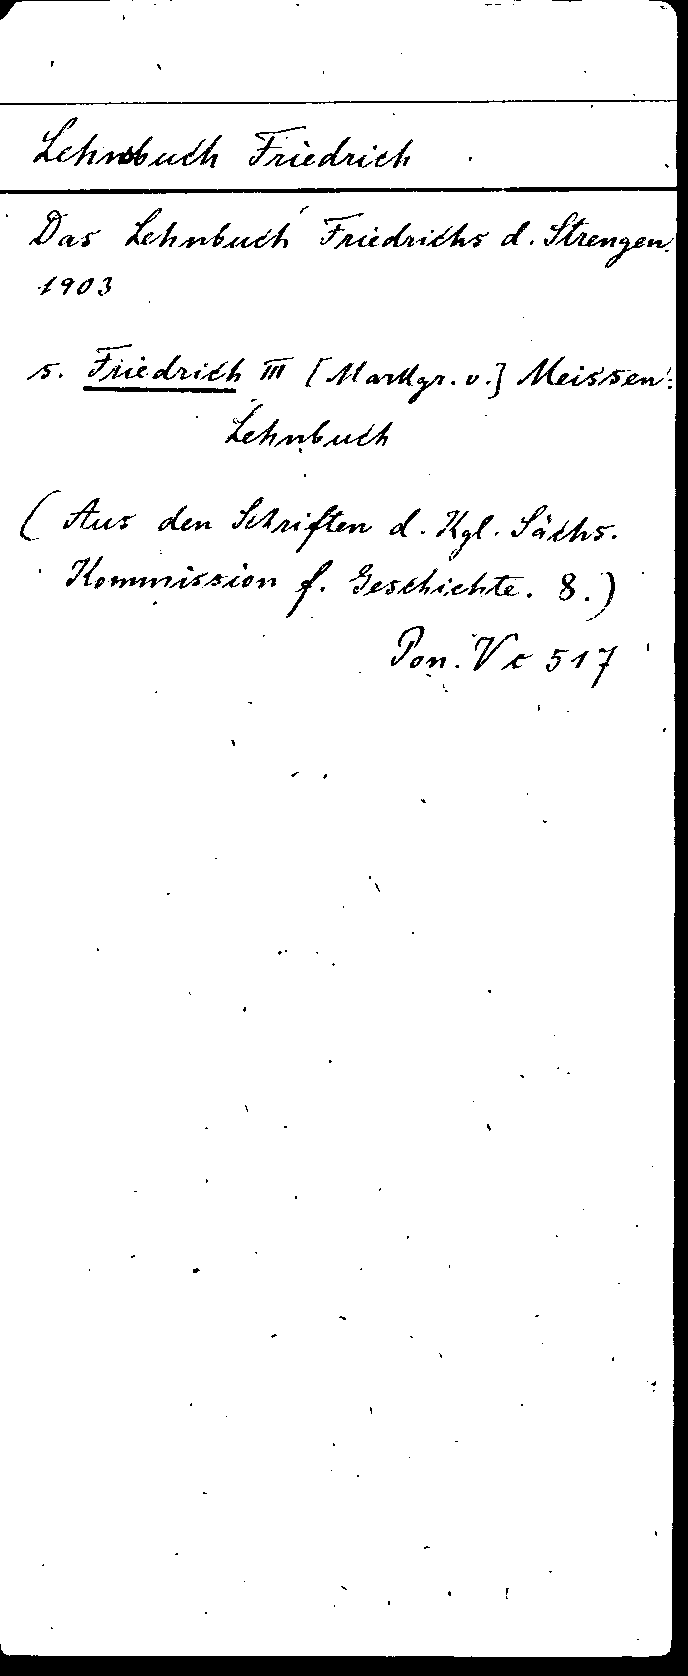 Lehnsbuch Friedrich
Das Lehnbuch Friedrichs d. Strengen.
1903
s. Friedrich III [Markgr. v.] Meissen:
Lehnbuch
(Aus den Schriften d. Kgl. Sächs.
Kommission f. Geschichte. 8.)
Pon. Vc 517